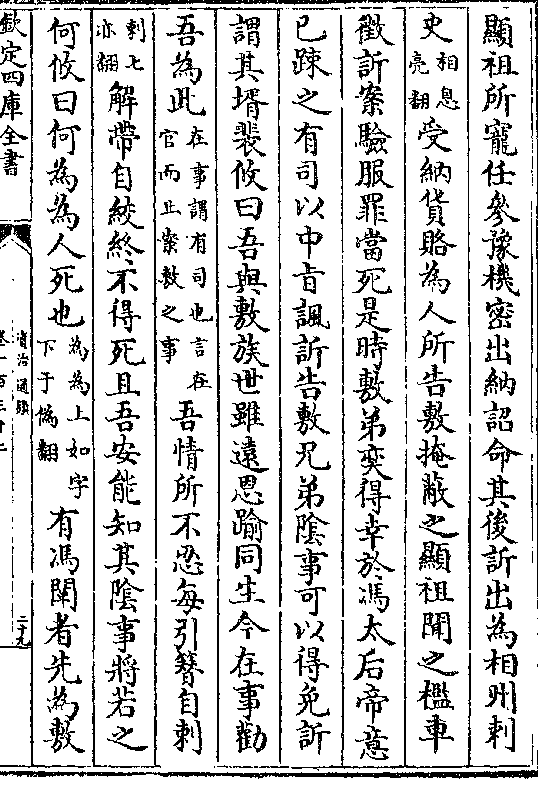 顯祖所寵任參豫機宻出納詔命其後訢出為相州刺
史相息亮翻受納貨賂為人所告敷掩蔽之顯祖聞之檻車
徵訢案驗服罪當死是時敷弟奕得幸於馮太后帝意
已踈之有司以中旨諷訢告敷兄弟隂事可以得免訢
謂其壻裴攸曰吾與敷族世雖遠恩踰同生今在事勸
吾為此在事謂有司也言在官而止案敷之事吾情所不忍每引簮自刺
刺七亦翻解帶自絞終不得死且吾安能知其隂事將若之
何攸曰何為為人死也為為上如字下于偽翻有馮闡者先為敷
欽定四庫全書
資治通鑑
卷一百三十二
二十九